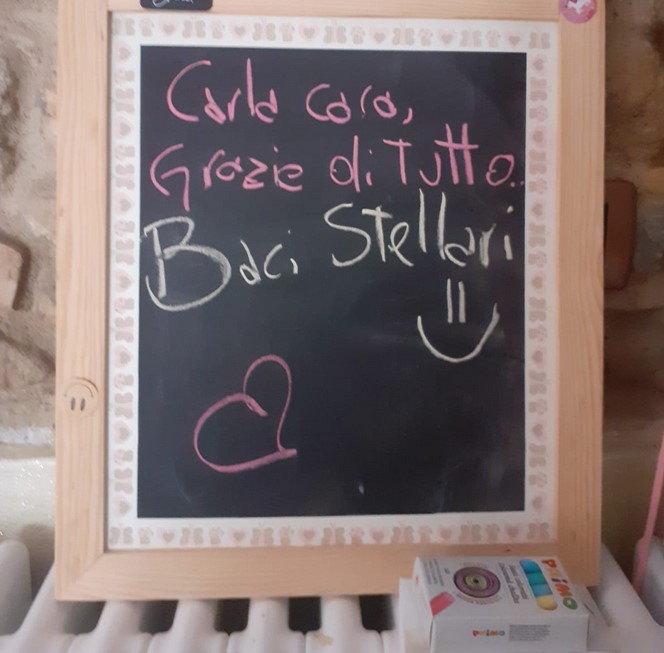 Carla cara,
Grazie di Tutto..
Baci Stellari
PRIMO
PRIMO